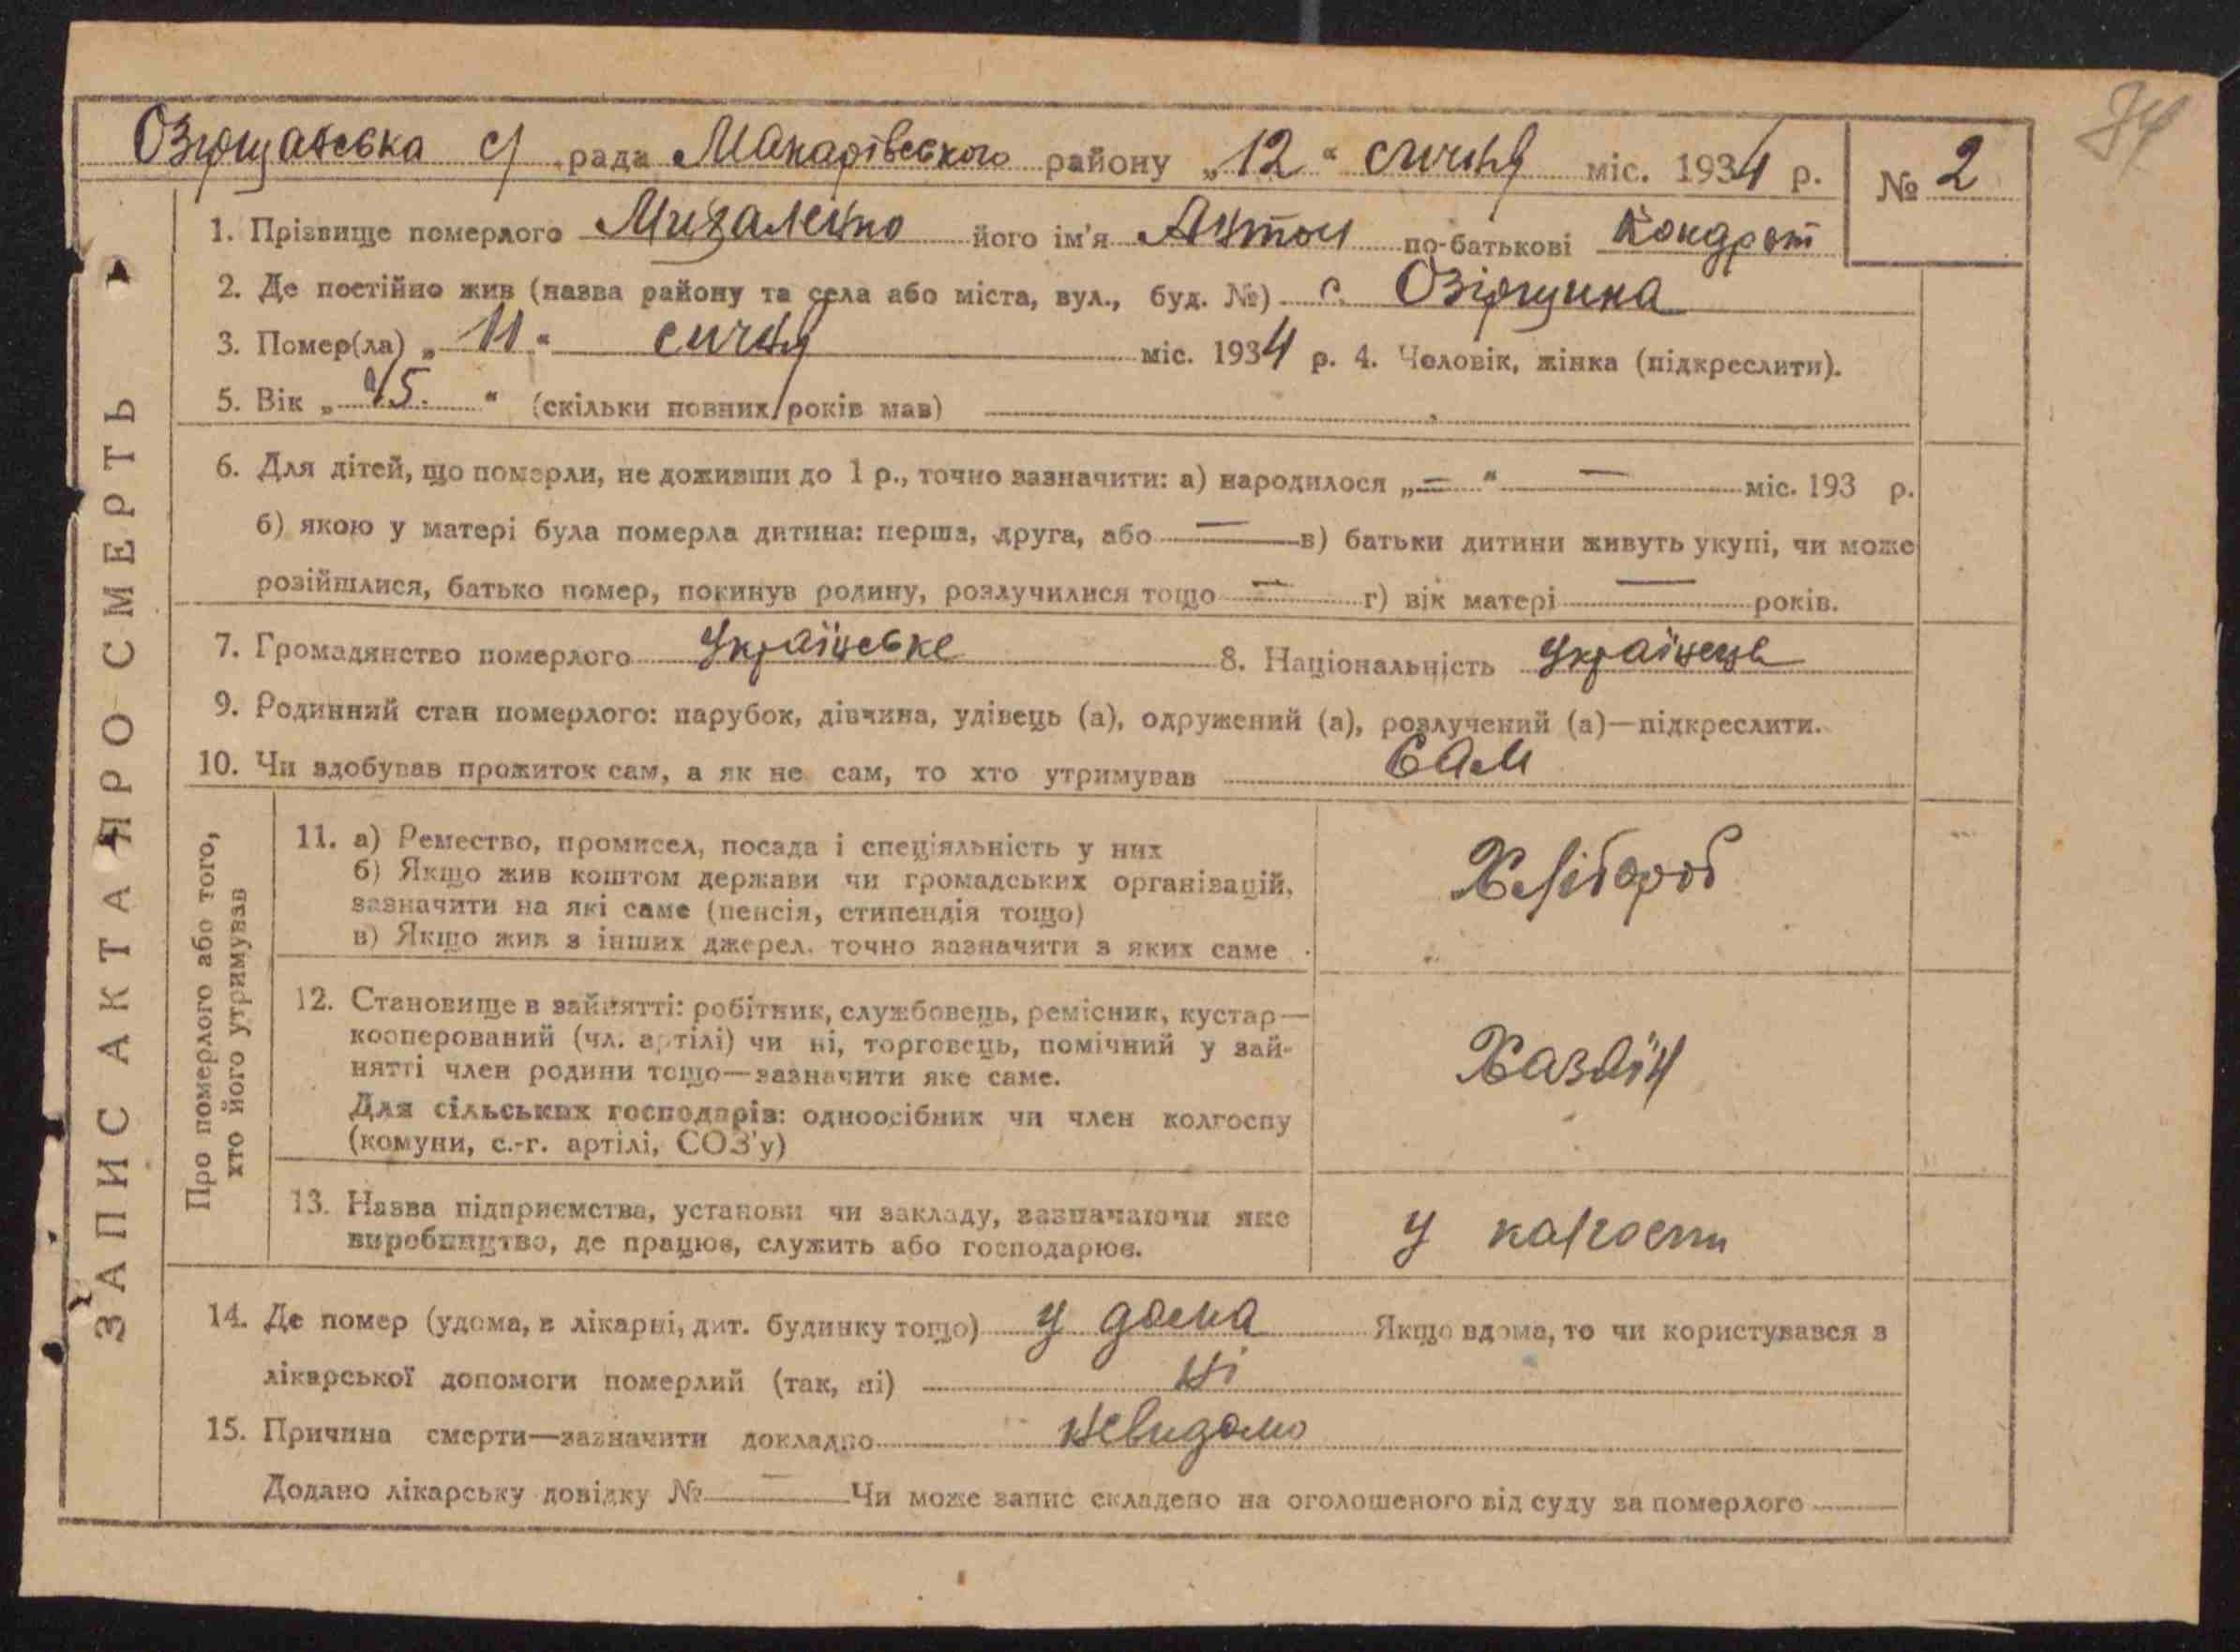 74
Озірщанська с/ рада Макарівського району „12“ січня міс. 1934 р. № 2
ЗАПИС АКТА ПРО СМЕРТЬ
1. Прізвище померлого Михаленко його ім'я Антон по-батькові Кондрат
2. Де постійно жив (назва району та села або міста, вул., буд. №) с. Озірщина
3. Помер(ла) „11“ січня міс. 1934 р. 4. Чоловік, жінка (підкреслити).
5. Вік „45.“ (скільки повних років мав)
6. Для дітей, що померли, не доживши до 1 р., точно зазначити: а) народилося „—“ — міс. 193 р.
б) якою у матері була померла дитина: перша, друга, або — в) батьки дитини живуть укупі, чи може
розійшлися, батько помер, покинув родину, розлучилися тощо — г) вік матері — років.
7. Громадянство померлого Українське 8. Національність Українець
9. Родинний стан померлого: парубок, дівчина, удівець (а), одружений (а), розлучений (а)—підкреслити.
10. Чи здобував прожиток сам, а як не сам, то хто утримував сам
Про померлого або того,
хто його утримував
11. а) Ремество, промисел, посада і спеціяльність у них
б) Якщо жив коштом держави чи громадських організацій,
зазначити на які саме (пенсія, стипендія тощо)
в) Якщо жив з інших джерел, точно зазначити з яких саме
Хлібороб
12. Становище в зайнятті: робітник, службовець, ремісник, кустар—
кооперований (чл. артілі) чи ні, торговець, помічний у зай-
нятті член родини тощо—зазначити яке саме.
Для сільських господарів: одноосібник чи член колгоспу
(комуни, с.-г. артілі, СОЗ'у)
Хазяїн
13. Назва підприємства, установи чи закладу, зазначаючи яке
виробництво, де працює, служить або господарює.
у
14. Де помер (удома, в лікарні, дит. будинку тощо) у дома Якщо вдома, то чи користувався з
лікарської допомоги померлий (так, ні) Ні
15. Причина смерти—зазначити докладно невидомо
Додано лікарську довідку № — Чи може запис складено на оголошеного від суду за померлого —